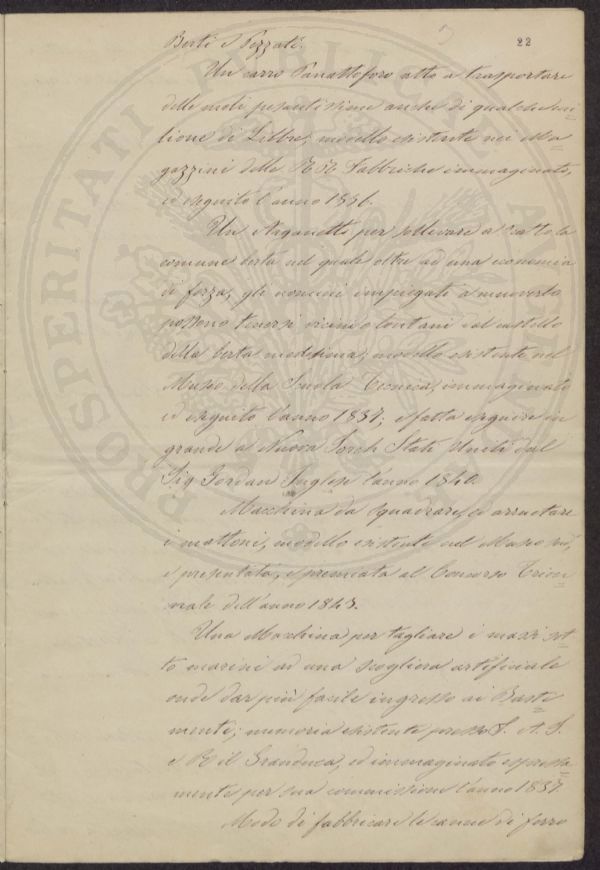 22
Berti e Pezzati.
Un carro Panattoforo atto a trasportare
delle moli pesantissime anche di qualche mi
lione di Libbre; modello esistente nei Ma
gazzini delle RR. Fabbriche immaginato,
ed eseguito l'anno 1836.
Un Arganetto per sollevare a Gatto la
comune berta nel quale oltre ad una economia
di forza, gli uomini impiegati a muoverlo
possono tenersi vicini o lontani dal castello
della berta medesima; modello esistente nel
Museo della Scuola Tecnica, immaginato
ed eseguito l'anno 1837; e fatta eseguire in
grande a Nuova Jorch Stati Uniti dal
Sig Jordan Inglese l'anno 1840.
Macchina da squadrare, ed arruotare
i mattoni, modello esistente nel Museo
e presentata, e premiata al Concorso Trien
nale dell'anno 1843.
Una Macchina per tagliare i massi sot
to marini ad una scogliera artificiale
onde dar più facile ingresso ai Basti
menti; memoria esistente presso S. A. I.
e R il Granduca, ed immaginato espressa
mente per sua commissione l'anno 1837.
Modo di fabbricare le canne di ferro
PROSPERITATI PUBLICAE